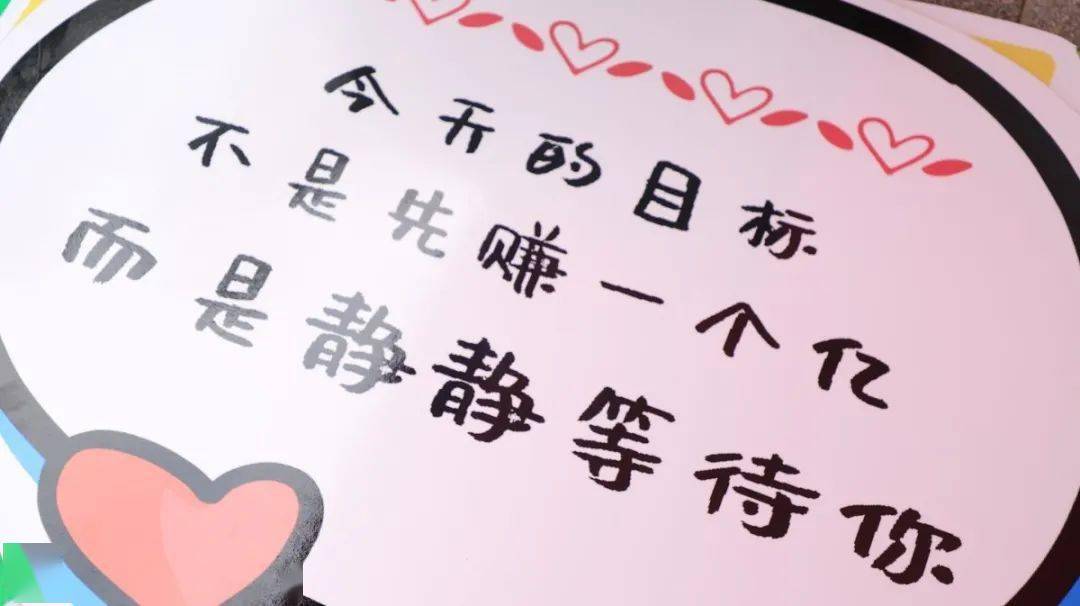 今天的目标
不是先赚一个亿
而是静静等待你